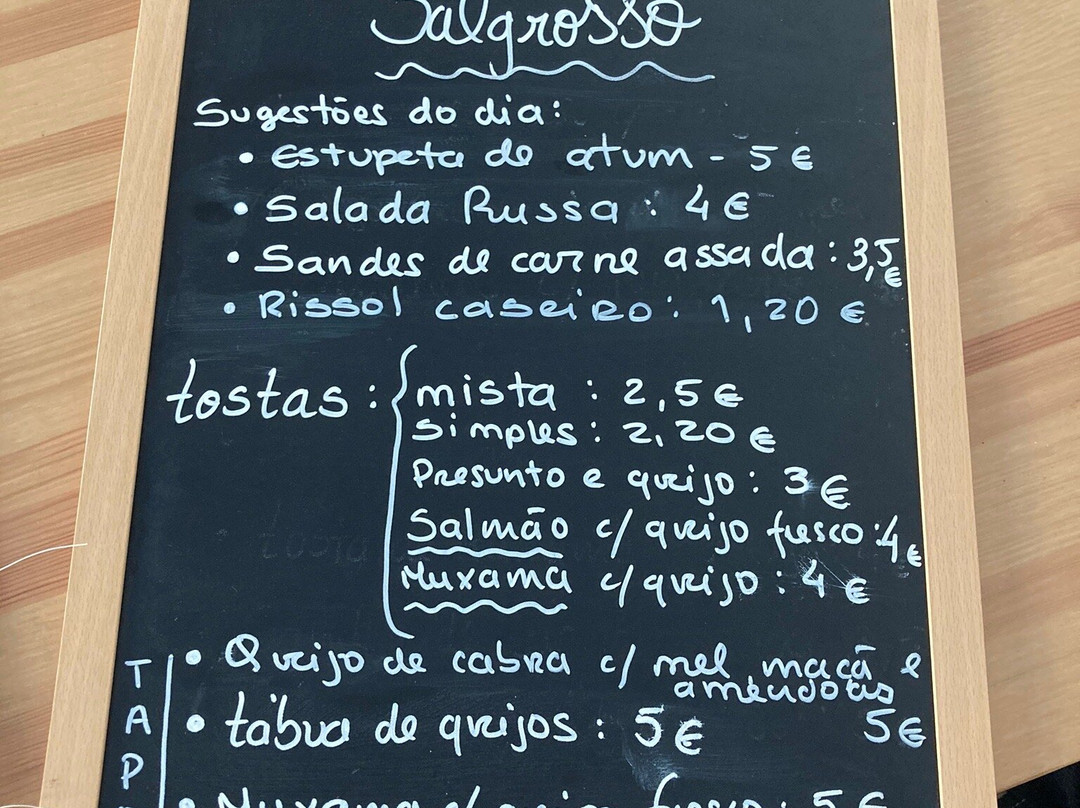 Salgrosso
Sugestões do dia:
• Estupeta de atum - 5 €
• Salada Russa : 4 €
• Sandes de carne assada : 3,5 €
• Rissol caseiro : 1,20 €
tostas :
mista : 2,5 €
simples : 2,20 €
Presunto e queijo : 3 €
Salmão c/ queijo fresco : 4 €
Muxama c/ queijo : 4 €
TAP
• Queijo de cabra c/ mel maçã e
amêndoas
5 €
• tábua de queijos : 5 €
• Muxama c/ queijo fresco : 5 €